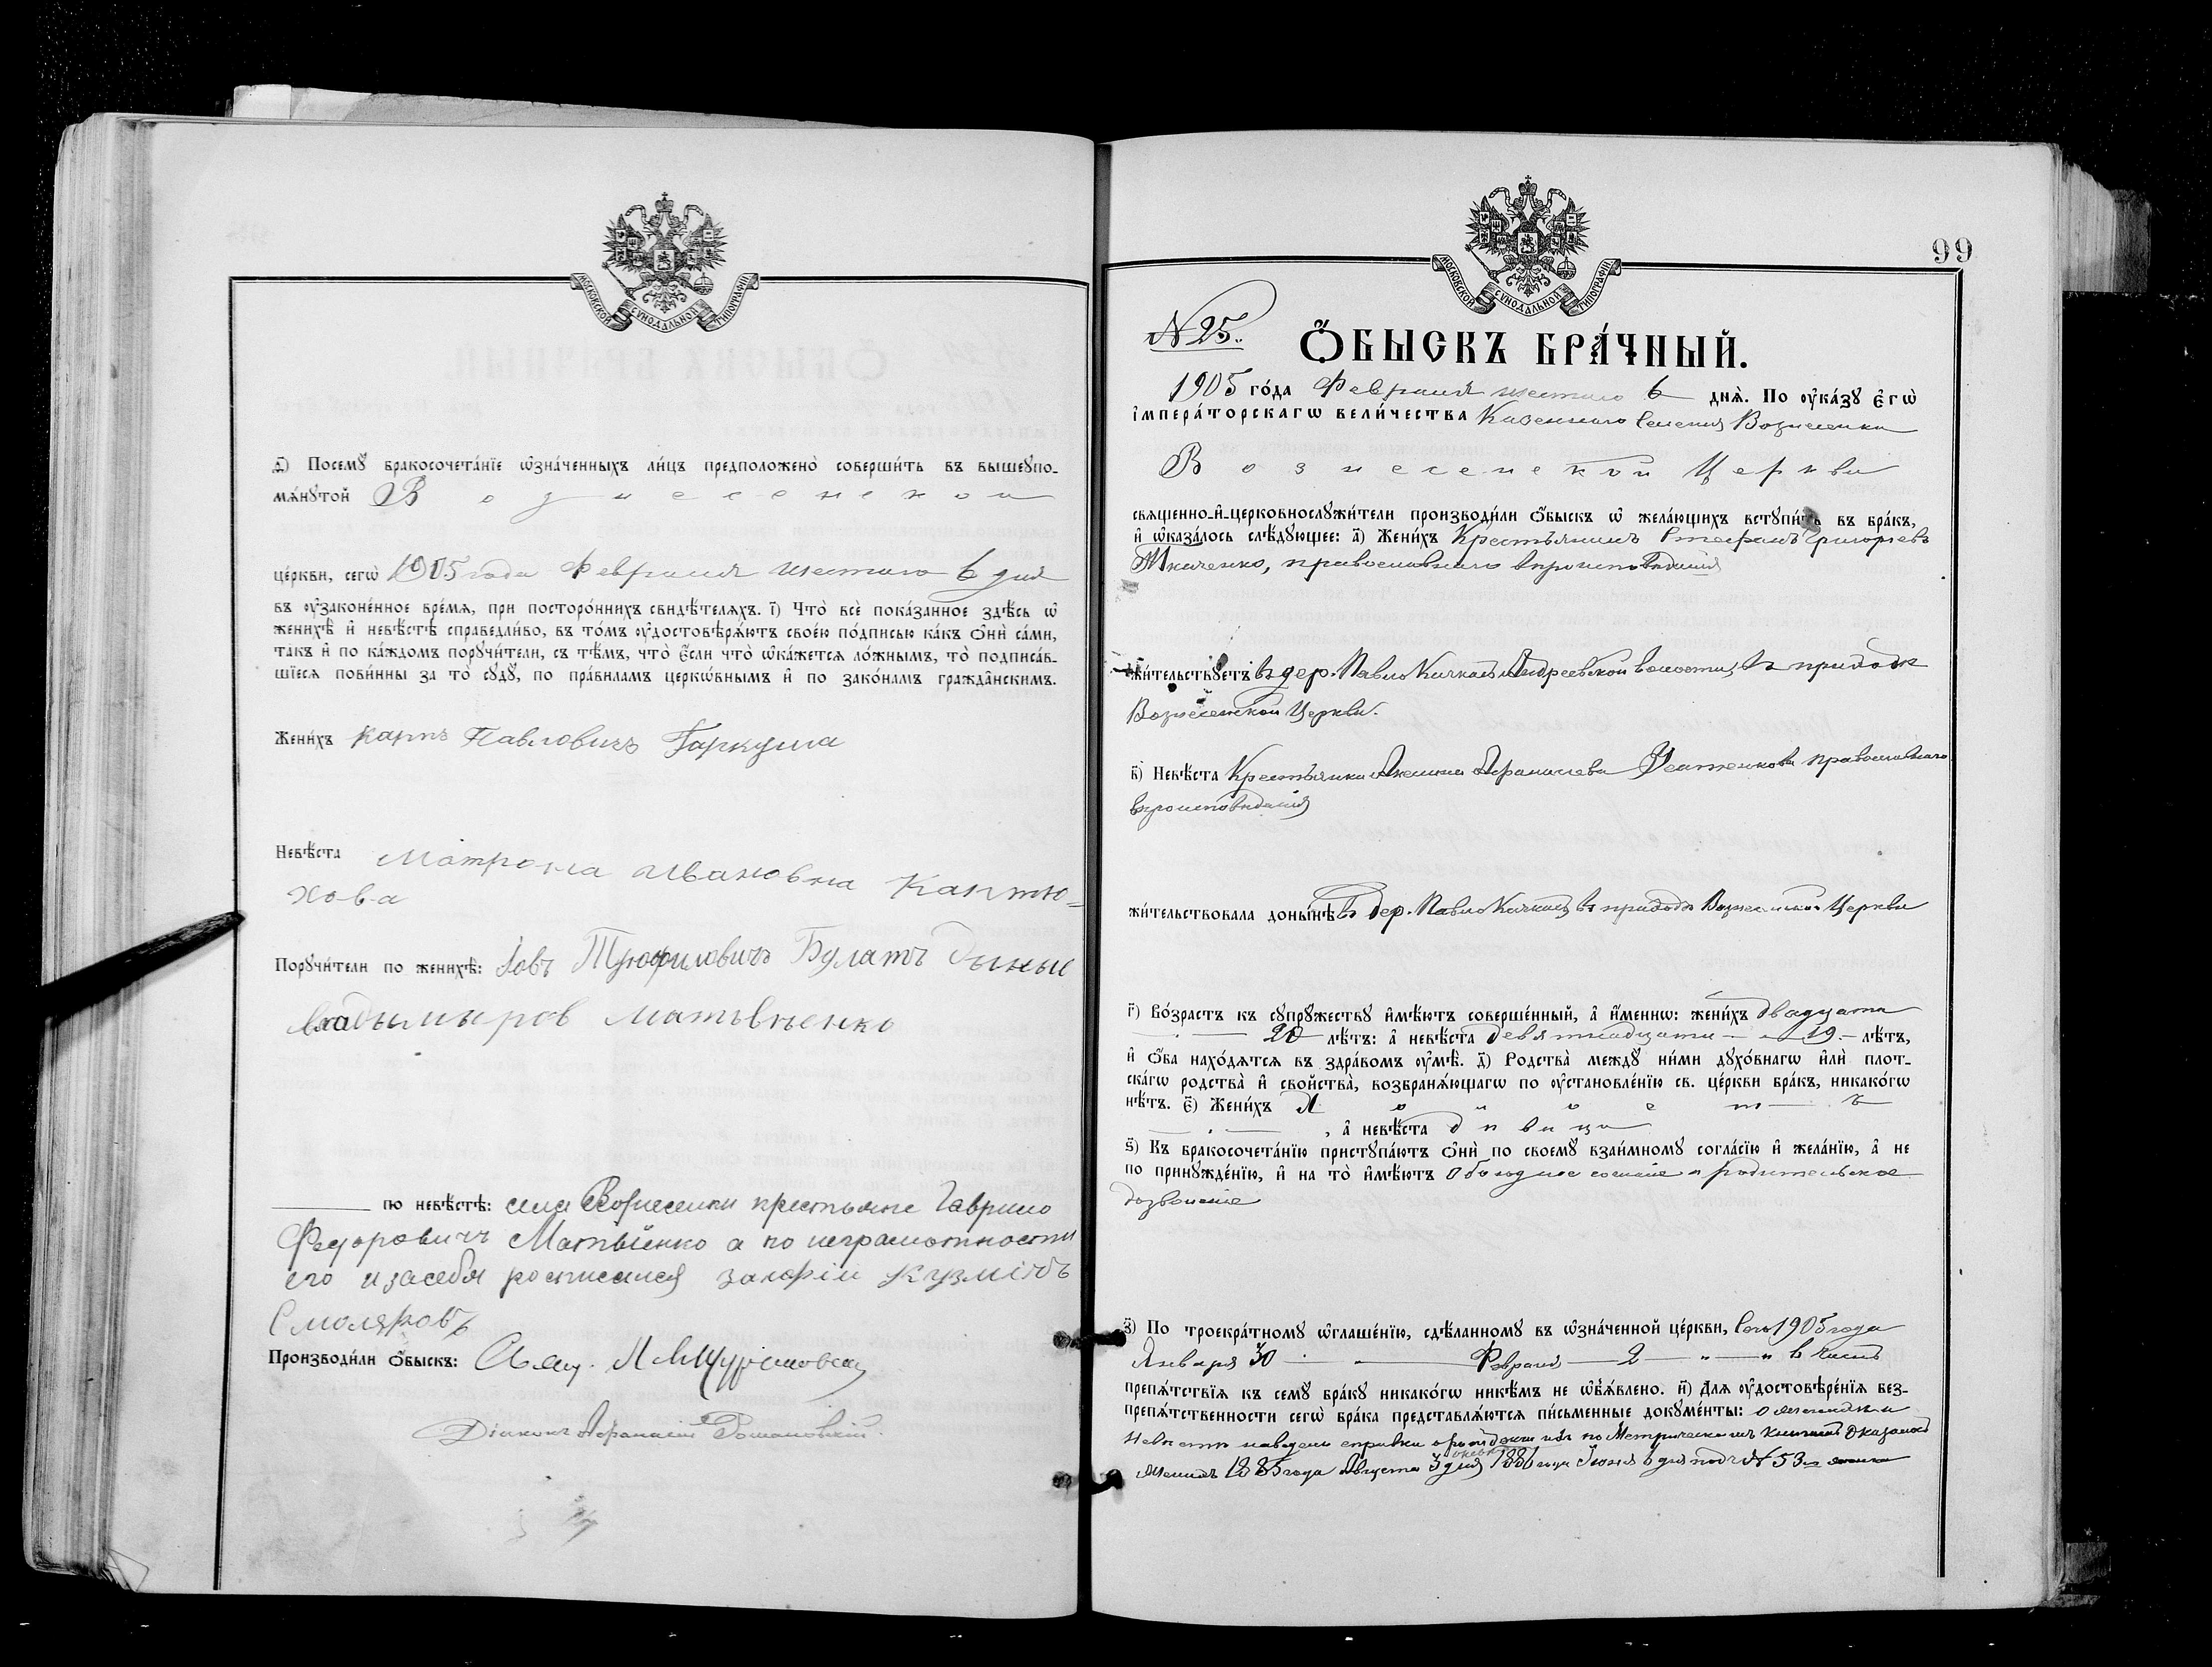 МОСКОВСКОЙ СѴНОДАЛЬНОЙ ТИПОГРАФІИ
д҃) Посемꙋ̀ бракосочета́нїе ѡ҆зна́ченныхъ ли́цъ предположено̀ соверши́ть въ вышеꙋпо-
мѧ́нꙋтой Вознесенской
це́ркви, сегѡ̀ 1905 года Февраля шестаго 6 дня
въ ᲂу҆законе́нное вре́мѧ, при посторо́ннихъ свидѣ́телѧхъ. і҃) Что̀ всѐ пока́занное здѣ́сь ѡ҆
женихѣ̀ и҆ невѣ́стѣ справедли́во, въ то́мъ ᲂу҆достовѣрѧ́ютъ свое́ю по́дписью ка́къ ѻ҆нѝ са́ми,
та́къ и҆ по ка́ждомъ порꙋчи́тели, съ тѣ́мъ, что̀ є҆́сли что̀ ѡ҆ка́жетсѧ ло́жнымъ, то̀ подписа́в-
шїесѧ пови́нны за то̀ сꙋдꙋ̀, по пра́виламъ церкѡ́внымъ и҆ по зако́намъ гражда́нскимъ.
Жени́хъ Карпъ Павловичъ Гаркуша
Невѣ́ста Матрона Ивановна Каптю=
хова
Порꙋчи́тели по женихѣ̀: Іовъ Булатъ
Матвѣенко
по невѣ́стѣ: села Вознесенки крестьяне Гаврило
Федоровичъ Матвіенко а по неграмотности
его и за себя росписался
Смоляровъ
Производи́ли ѻ҆́быскъ:
Діаконъ Афанасій Романовскій.
99
МОСКОВСКОЙ СѴНОДАЛЬНОЙ ТИПОГРАФІИ
N 25.
Ѻ҆́БЫСКЪ БРА́ЧНЫЙ.
1905 го́да Февраля шестаго 6 днѧ̀. По ᲂу҆ка́зꙋ Є҆гѡ̀
і҆мпера́торскагѡ вели́чества Казеннаго Селенія Вознесенки
Вознесенской Церкви
свѧще́нно-и҆-церковнослꙋжи́тели производи́ли ѻ҆́быскъ ѡ҆ жела́ющихъ встꙋпи́ть въ бра́къ,
и҆ ѡ҆каза́лось слѣ́дꙋющее: а҃) Жени́хъ Крестьянинъ Стефанъ Григорьевъ
Ткаченко, православнаго вѣроисповѣданія
жи́тельствꙋетъ въ дер. Павло Кичкасъ Андреевской волости, въ приходѣ
Вознесенской Церкви.
в҃) Невѣ́ста Крестьянка Афанасіева православнаго
вѣроисповѣданія
жи́тельствовала доны́нѣ въ дер. Павло Кичкасъ въ приходѣ Вознесенской Церкви
г҃) Во́зрастъ къ сꙋпрꙋ́жествꙋ и҆мѣ́ютъ соверше́нный, а҆ и҆́меннѡ: жени́хъ двадцати
20 лѣ́тъ: а҆ невѣ́ста девятнадцати 19 лѣ́тъ,
и҆ ѻ҆́ба нахо́дѧтсѧ въ здра́вомъ ᲂу҆мѣ̀. д҃) Родства̀ междꙋ̀ ни́ми дꙋхо́внагѡ и҆лѝ плот-
ска́гѡ родства̀ и҆ сво́йства̀, возбранѧ́ющагѡ по ᲂу҆становле́нїю св. це́ркви бра́къ, никако́гѡ
нѣ́тъ. є҃) Жени́хъ Холостъ
, а҆ невѣ́ста дѣвица
ѕ҃) Къ бракосочета́нїю пристꙋпа́ютъ ѻ҆нѝ по своемꙋ̀ взаи́мномꙋ согла́сїю и҆ жела́нїю, а҆ не
по принꙋжде́нїю, и҆ на то̀ и҆мѣ́ютъ обоюдное согласіе и родительское
дозволеніе
з҃) По троекра́тномꙋ ѡ҆глаше́нїю, сдѣ́ланномꙋ въ ѡ҆зна́ченной це́ркви, Сего 1905 года
Января 30 Февраля 2
препѧ́тствїѧ къ семꙋ̀ бра́кꙋ никако́гѡ никѣ́мъ не ѡ҆бъѧ́влено. и҃) Длѧ ᲂу҆достовѣре́нїѧ без-
препѧ́тственности сегѡ̀ бра́ка представлѧ́ютсѧ пи́сьменные докꙋме́нты: о женихѣ и
невѣстѣ наведены справки о рожденіи ихъ по Метрическимъ книгамъ оказалось
женихъ 1885 года Августа 3 дня 1886 года Іюня 6 дня подъ N 53